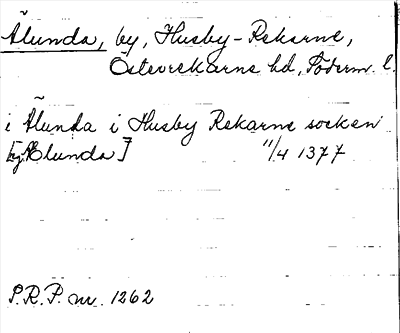 Ålunda, by, Husby-Rekarne,
Österrekarne hd, Söderm. l.
i Ålunda i Husby Rekarne socken
Elunda] 11/4 1377
S.R.P. nr. 1262